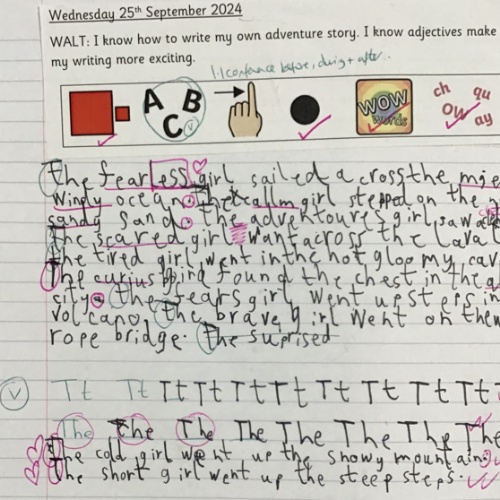 Wednesday 25th September 2024
WALT: I know how to write my own adventure story. I know adjectives make
my writing more exciting.
1:1 conference before, during + after.
A B C
WOW words
ch qu ow ay
the fearless girl sailed a cross the
windy ocean. the callm girl stepped on the
sandy sand. the advektoures girl saw
the scared girl want across the lava
the tired girl went in the hot gloo my cav
The curius girl found the chest in the
sity. the girl went up steps in
volcano. the brave girl went on the
rope bridge. The suprised
v Tt Tt Tt Tt Tt Tt Tt Tt Tt Tt
The The The The The The The The The
The cold girl went up the snowy mountain.
The short girl went up the steep steps.